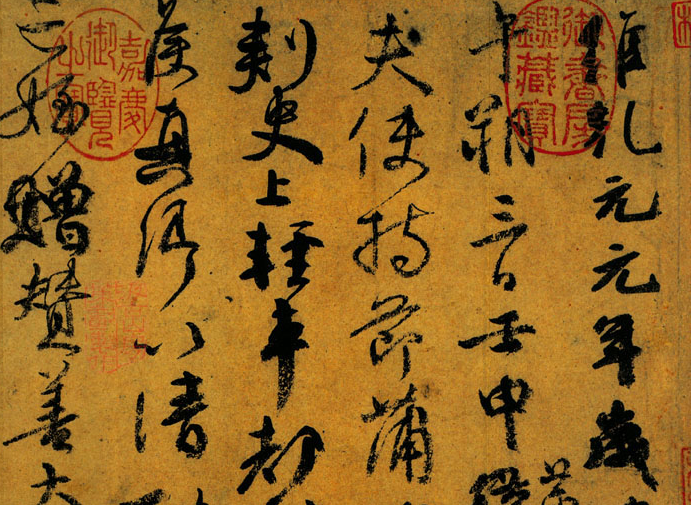 維乾元元年歲
午朔三日壬申
夫使持節蒲
刺史上輕車都
侯真卿以清
亡姪贈贊善大
御書房鑑藏寶
嘉慶御覽之寶